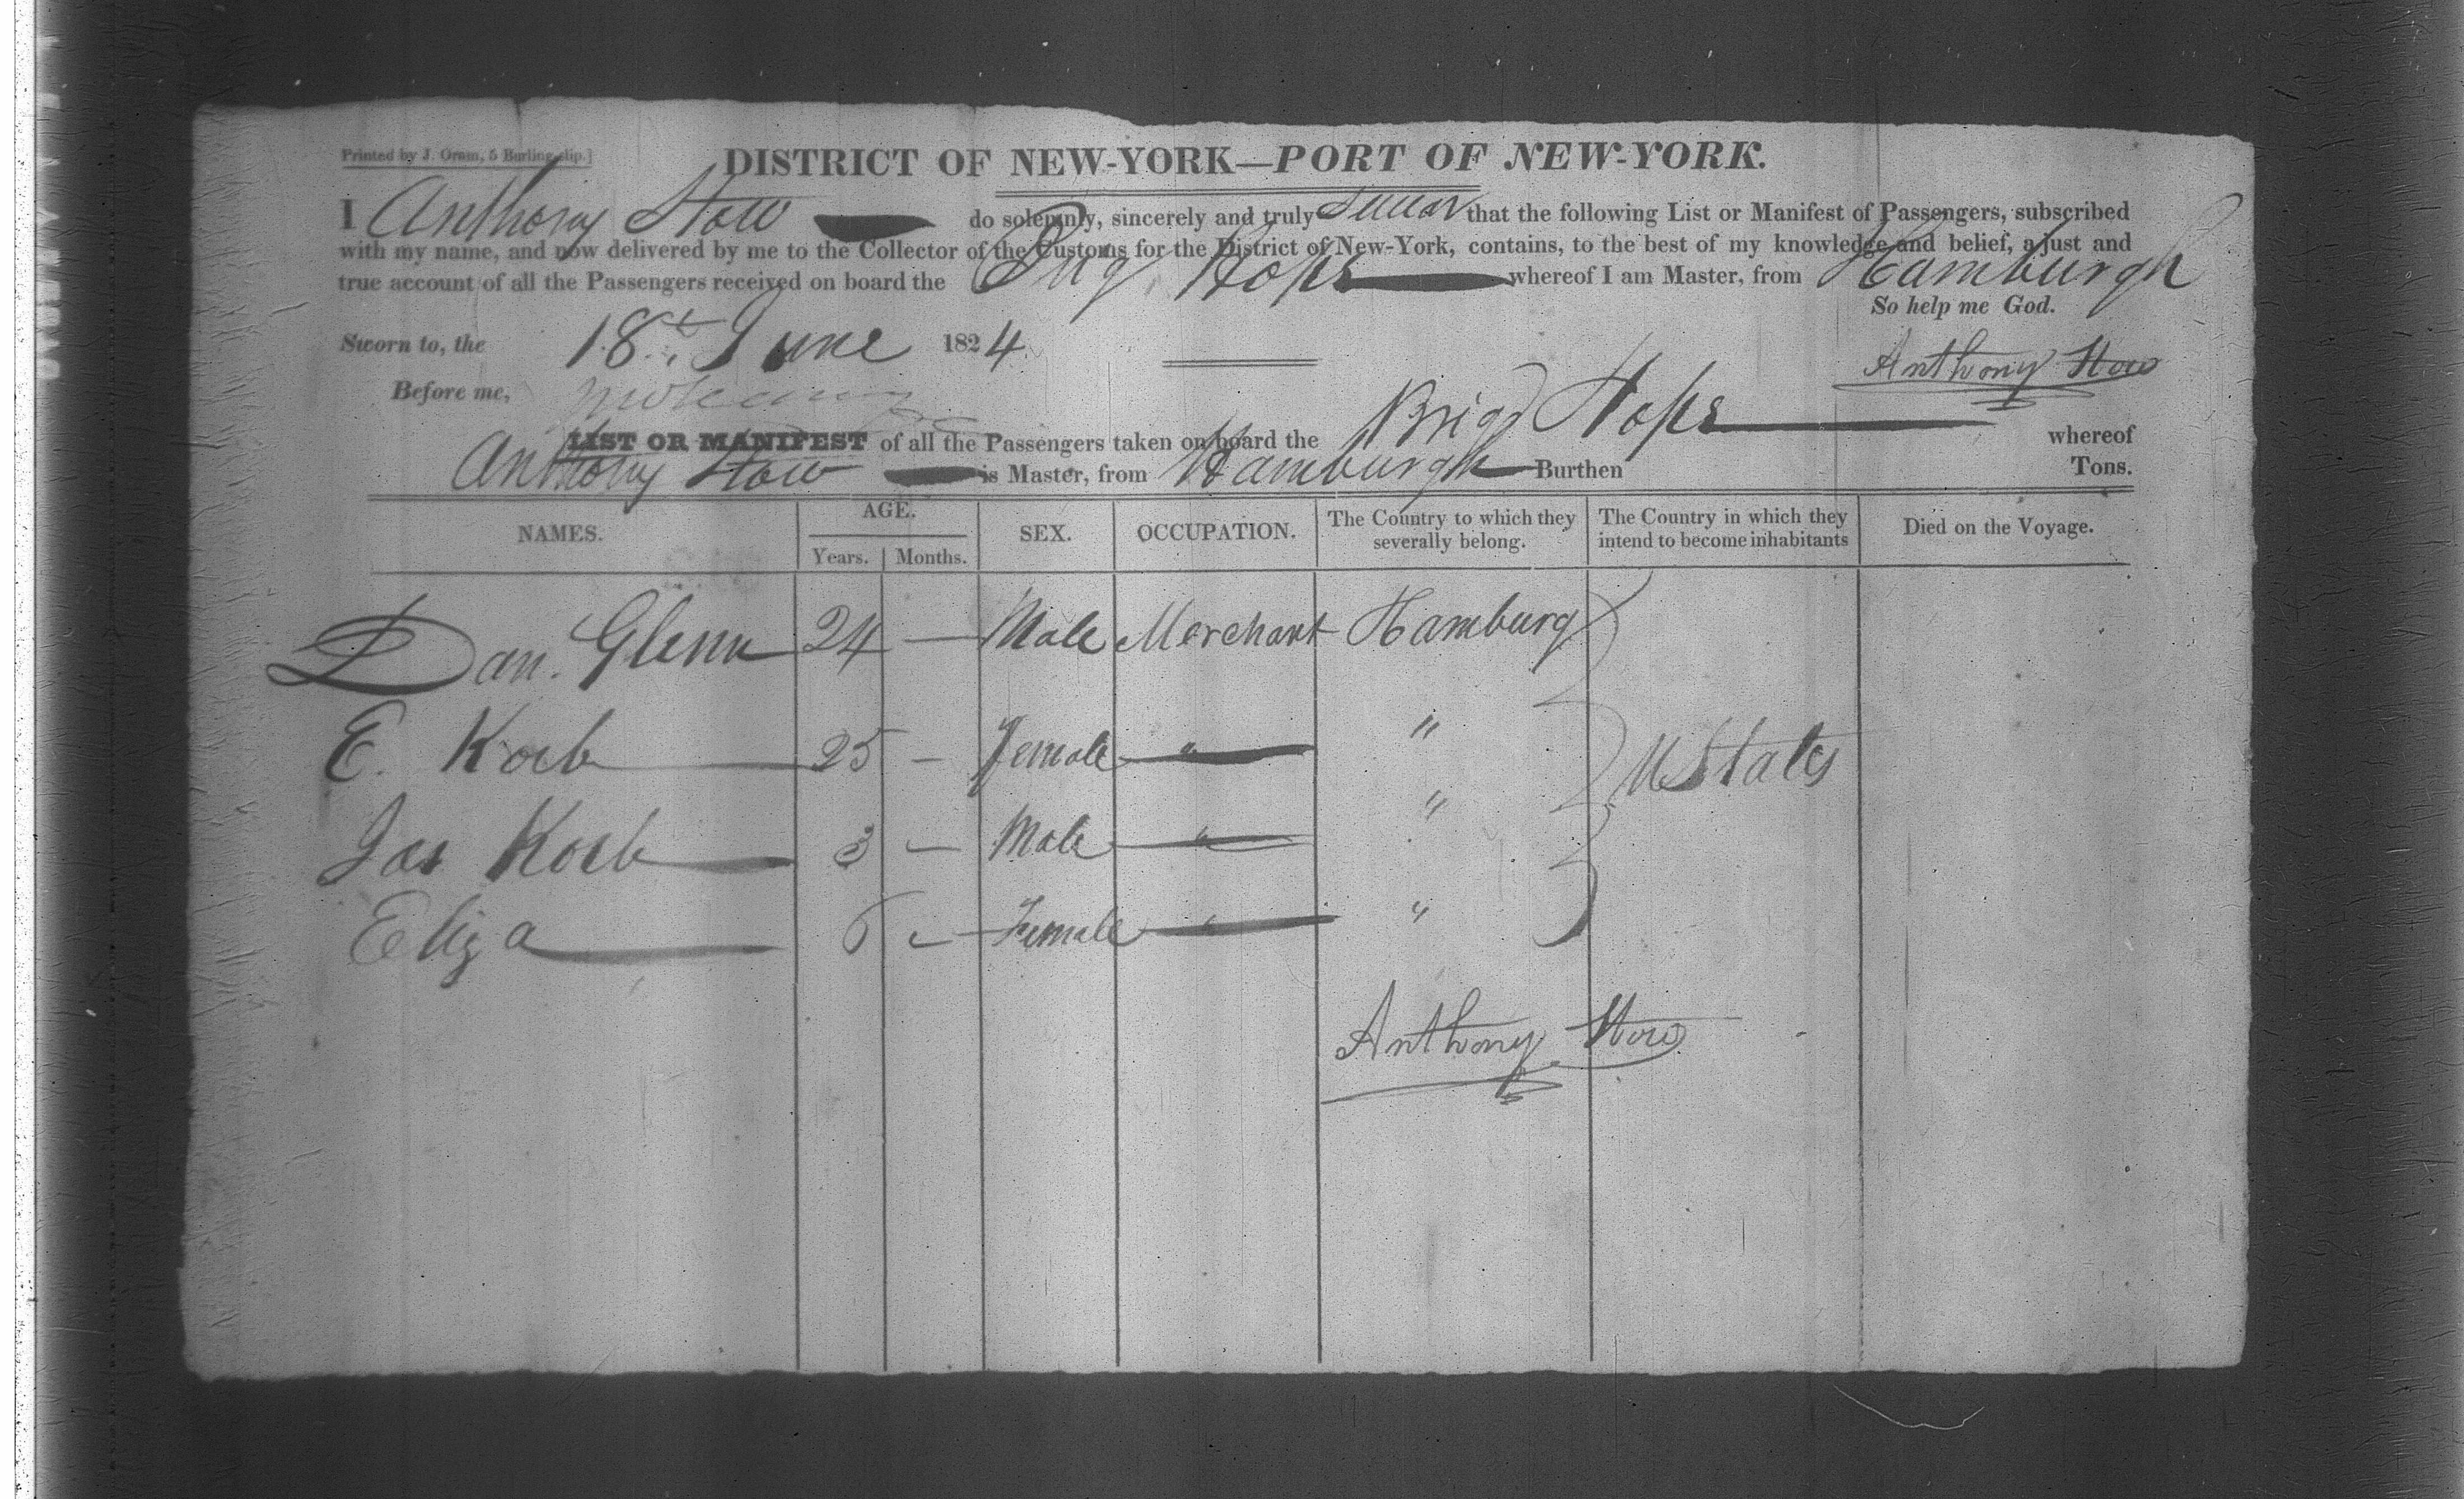 Printed by J. Oram, 5 Burling-slip.]
DISTRICT OF NEW-YORK—PORT OF NEW-YORK.
I Anthony Stow do solemnly, sincerely and truly swear that the following List or Manifest of Passengers, subscribed
with my name, and now delivered by me to the Collector of the Customs for the District of New-York, contains, to the best of my knowledge and belief, a just and
true account of all the Passengers received on board the Brig Hope whereof I am Master, from Hamburgh
So help me God.
Sworn to, the 18th June 1824
Anthony Stow
Before me,
LIST OR MANIFEST of all the Passengers taken on board the Brig Hope whereof
Anthony Stow is Master, from Hamburgh Burthen Tons.
NAMES. AGE. SEX. OCCUPATION. The Country to which they severally belong. The Country in which they intend to become inhabitants Died on the Voyage.
Years. Months.
Dan. Glenn 24 — Male Merchant Hamburg
E. Koeb 25 — Female " "
U States
Jas Koeb 3 — Male " "
Eliza 6 — Female " "
Anthony Stow